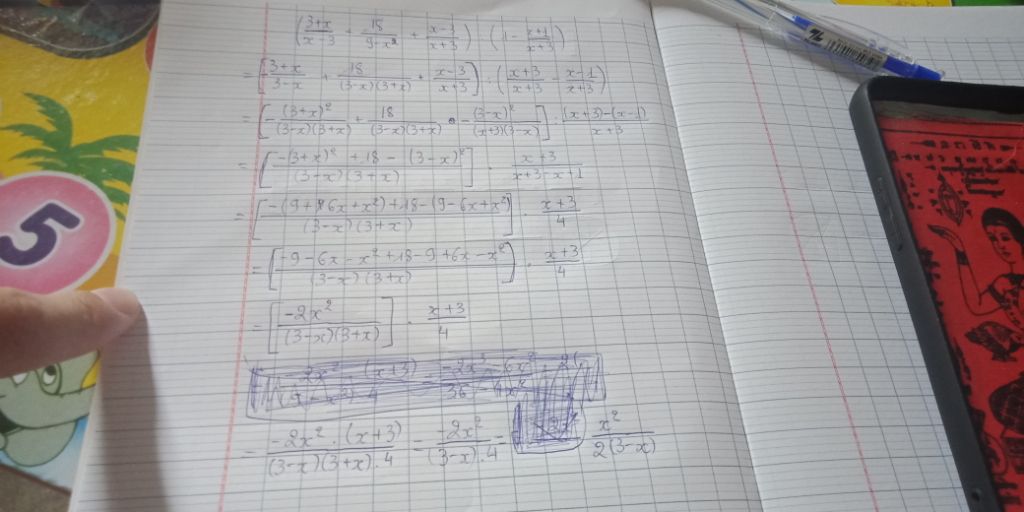 (3+x/x-3 + 18/9-x² + x-3/x+3) : (1 - x-1/x+3)
= [-3+x/3-x + 18/(3-x)(3+x) + x-3/x+3] : (x+3/x+3 - x-1/x+3)
= [-(3+x)²/(3-x)(3+x) + 18/(3-x)(3+x) + -(3-x)²/(x+3)(3-x)] : (x+3)-(x-1)/x+3
= [-(3+x)² + 18 - (3-x)²/(3-x)(3+x)] . x+3/x+3-x+1
= [-(9+6x+x²)+18-(9-6x+x²)/(3-x)(3+x)] . x+3/4
= [-9-6x-x²+18-9+6x-x²/(3-x)(3+x)] . x+3/4
= [-2x²/(3-x)(3+x)] . x+3/4
= -2x².(x+3)/(3-x)(3+x).4 = -2x²/(3-x).4 = - x²/2(3-x)
5